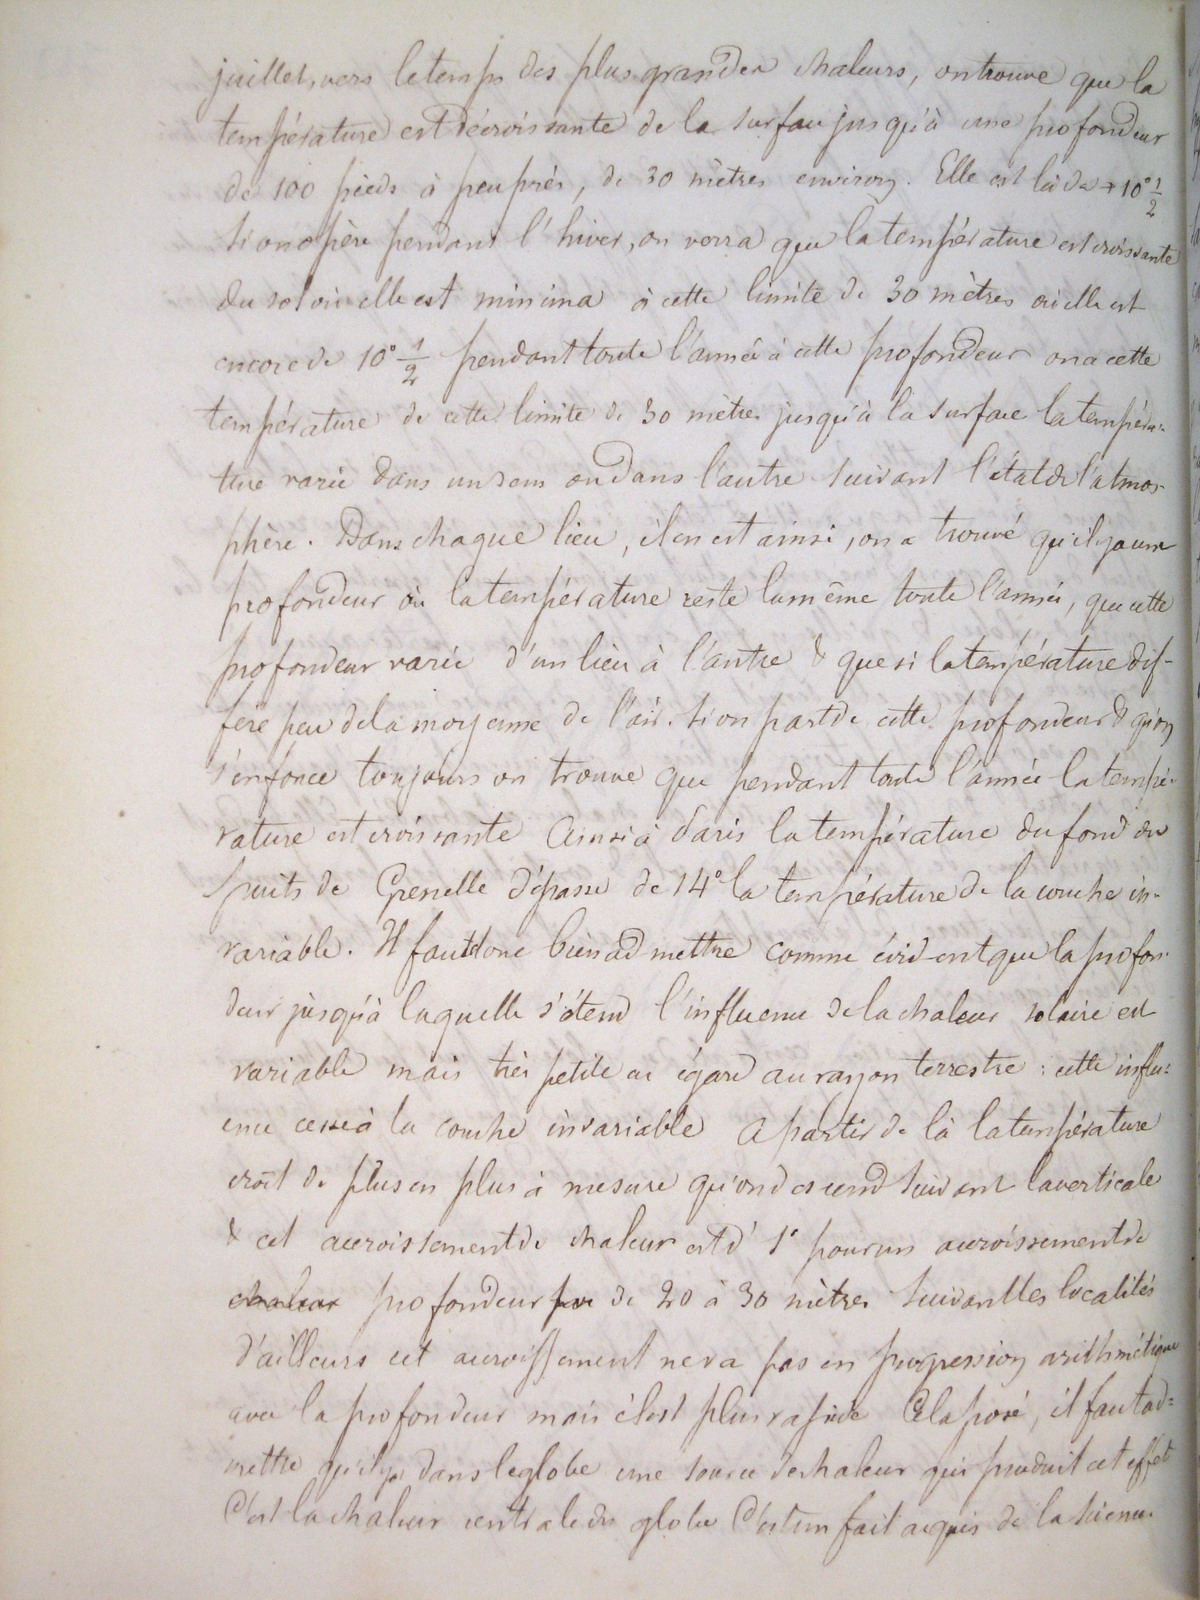 juillet, vers le temps des plus grandes chaleurs, on trouve que la
température est décroissante de la surface jusqu'à une profondeur
de 100 pieds à peu près, de 30 mètres environ. Elle est là de + 10° 1/2
si on opère pendant l'hiver, on verra que la température est croissante
du sol où elle est minima à cette limite de 30 mètres où elle est
encore de 10° 1/2 pendant toute l'année à cette profondeur on a cette
température de cette limite de 30 mètres jusqu'à la surface la tempéra-
ture varie dans un sens ou dans l'autre suivant l'état de l'atmos-
phère. Dans chaque lieu, il en est ainsi, on a trouvé qu'il y a une
profondeur où la température reste la même toute l'année, que cette
profondeur varie d'un lieu à l'autre & que si la température dif-
fère peu de la moyenne de l'air. Si on part de cette profondeur & qu'on
s'enfonce toujours on trouve que pendant toute l'année la tempé-
rature est croissante Ainsi à Paris la température du fond du
puits de Grenelle dépasse de 14° la température de la couche in-
variable. Il faut donc bien admettre comme évident que la profon-
deur jusqu'à laquelle s'étend l'influence de la chaleur solaire est
variable mais très petite eu égard au rayon terrestre : cette influ-
ence cesse à la couche invariable A partir de là la température
croît de plus en plus à mesure qu'on descend suivant la verticale
& cet accroissement de chaleur est d' 1° pour un accroissement de
chaleur profondeur de 20 à 30 mètres suivant les localités
d'ailleurs cet accroissement ne va pas en progression arithmétique
avec la profondeur mais c'est plus rapide Cela posé, il faut ad-
mettre qu'il y a dans le globe une source de chaleur qui produit cet effet
C'est la chaleur centrale du globe C'est un fait acquis de la science.